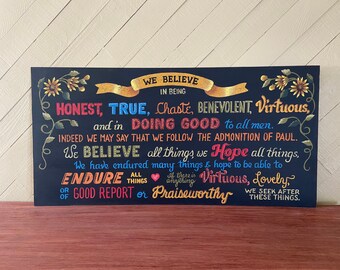 WE BELIEVE
IN BEING
HONEST, TRUE, Chaste, BENEVOLENT, Virtuous,
and in DOING GOOD to all men.
INDEED WE MAY SAY THAT WE FOLLOW THE ADMONITION OF PAUL.
We BELIEVE all things we Hope all things,
We have endured many things & hope to be able to
ENDURE ALL THINGS If there is anything Virtuous, Lovely,
OR OF GOOD REPORT or Praiseworthy WE SEEK AFTER THESE THINGS.